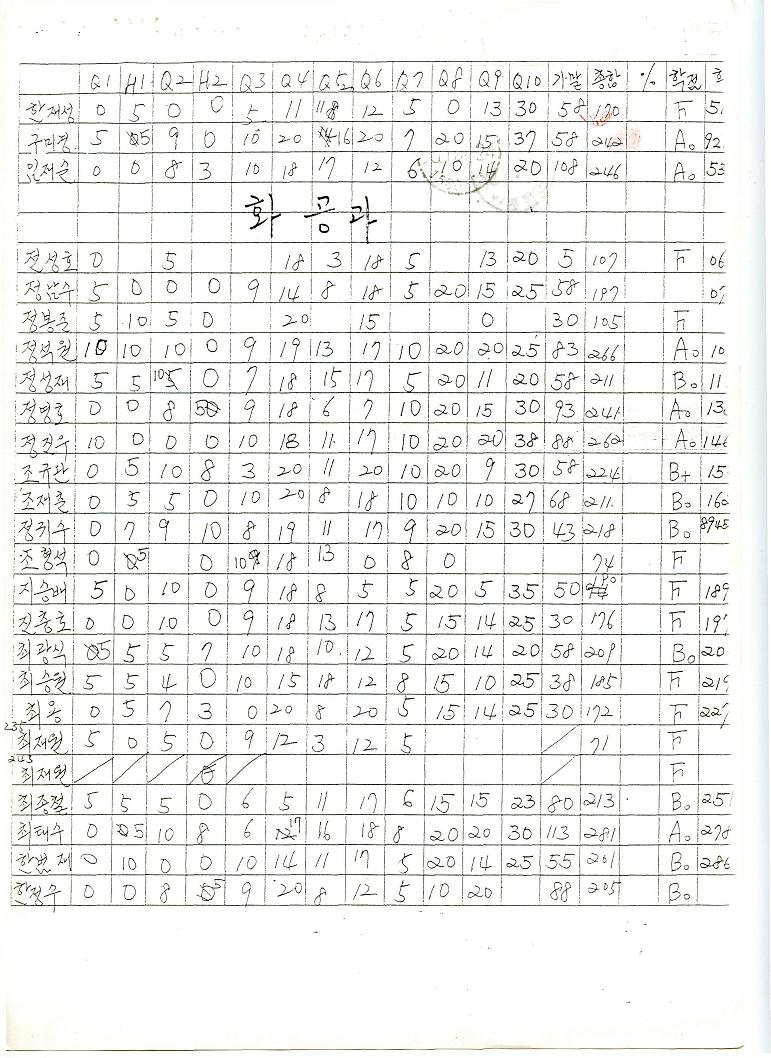 Q1 H1 Q2 H2 Q3 Q4 Q5 Q6 Q7 Q8 Q9 Q10 기말 종합 % 학점
한재성 0 5 0 0 5 11 8 12 5 0 13 30 58 170 F 5
구미경 5 5 9 0 10 20 16 20 7 20 15 37 58 242 A0 92
임재율 0 0 8 3 10 18 17 12 6 10 14 20 108 246 A0 53
화공과
전성호 0 5 18 3 18 5 13 20 5 107 F 06
정남수 5 0 0 0 9 14 8 18 5 20 15 25 58 197
정봉준 5 10 5 0 20 15 0 30 105 F
정석원 10 10 10 0 9 19 13 17 10 20 20 25 83 266 A0 10
정성재 5 5 10 0 7 18 15 17 5 20 11 20 58 211 B0 11
정영호 0 0 8 5 9 18 6 7 10 20 15 30 93 241 A0 13
정진우 10 0 0 0 10 18 11 17 10 20 20 38 88 262 A0 146
조규관 0 5 10 8 3 20 11 20 10 20 9 30 58 224 B+ 15
조재춘 0 5 5 0 10 20 8 18 10 10 10 27 68 211 B0 160
정귀수 0 7 9 10 8 19 11 17 9 20 15 30 43 218 B0 8945
조형석 0 5 0 10 18 13 0 8 0 74 F
지승배 5 0 10 0 9 18 8 5 5 20 5 35 50 F 189
진종호 0 0 10 0 9 18 13 17 5 15 14 25 30 176 F 19
최광식 5 5 5 7 10 18 10 12 5 20 14 20 58 209 B0 20
최승월 5 5 4 0 10 15 18 12 8 15 10 25 38 185 F 219
최웅 0 5 7 3 0 20 8 20 5 15 14 25 30 172 F 227
235 최재원 5 0 5 0 9 12 3 12 5 71 F
243 최재원 F
최종철 5 5 5 0 6 5 11 17 6 15 15 23 80 213 B0 251
최태수 0 5 10 8 6 17 16 18 8 20 20 30 113 281 A0 278
한범재 0 10 0 0 10 14 11 17 5 20 14 25 55 201 B0 286
한정수 0 0 8 5 9 20 8 12 5 10 20 88 205 B0